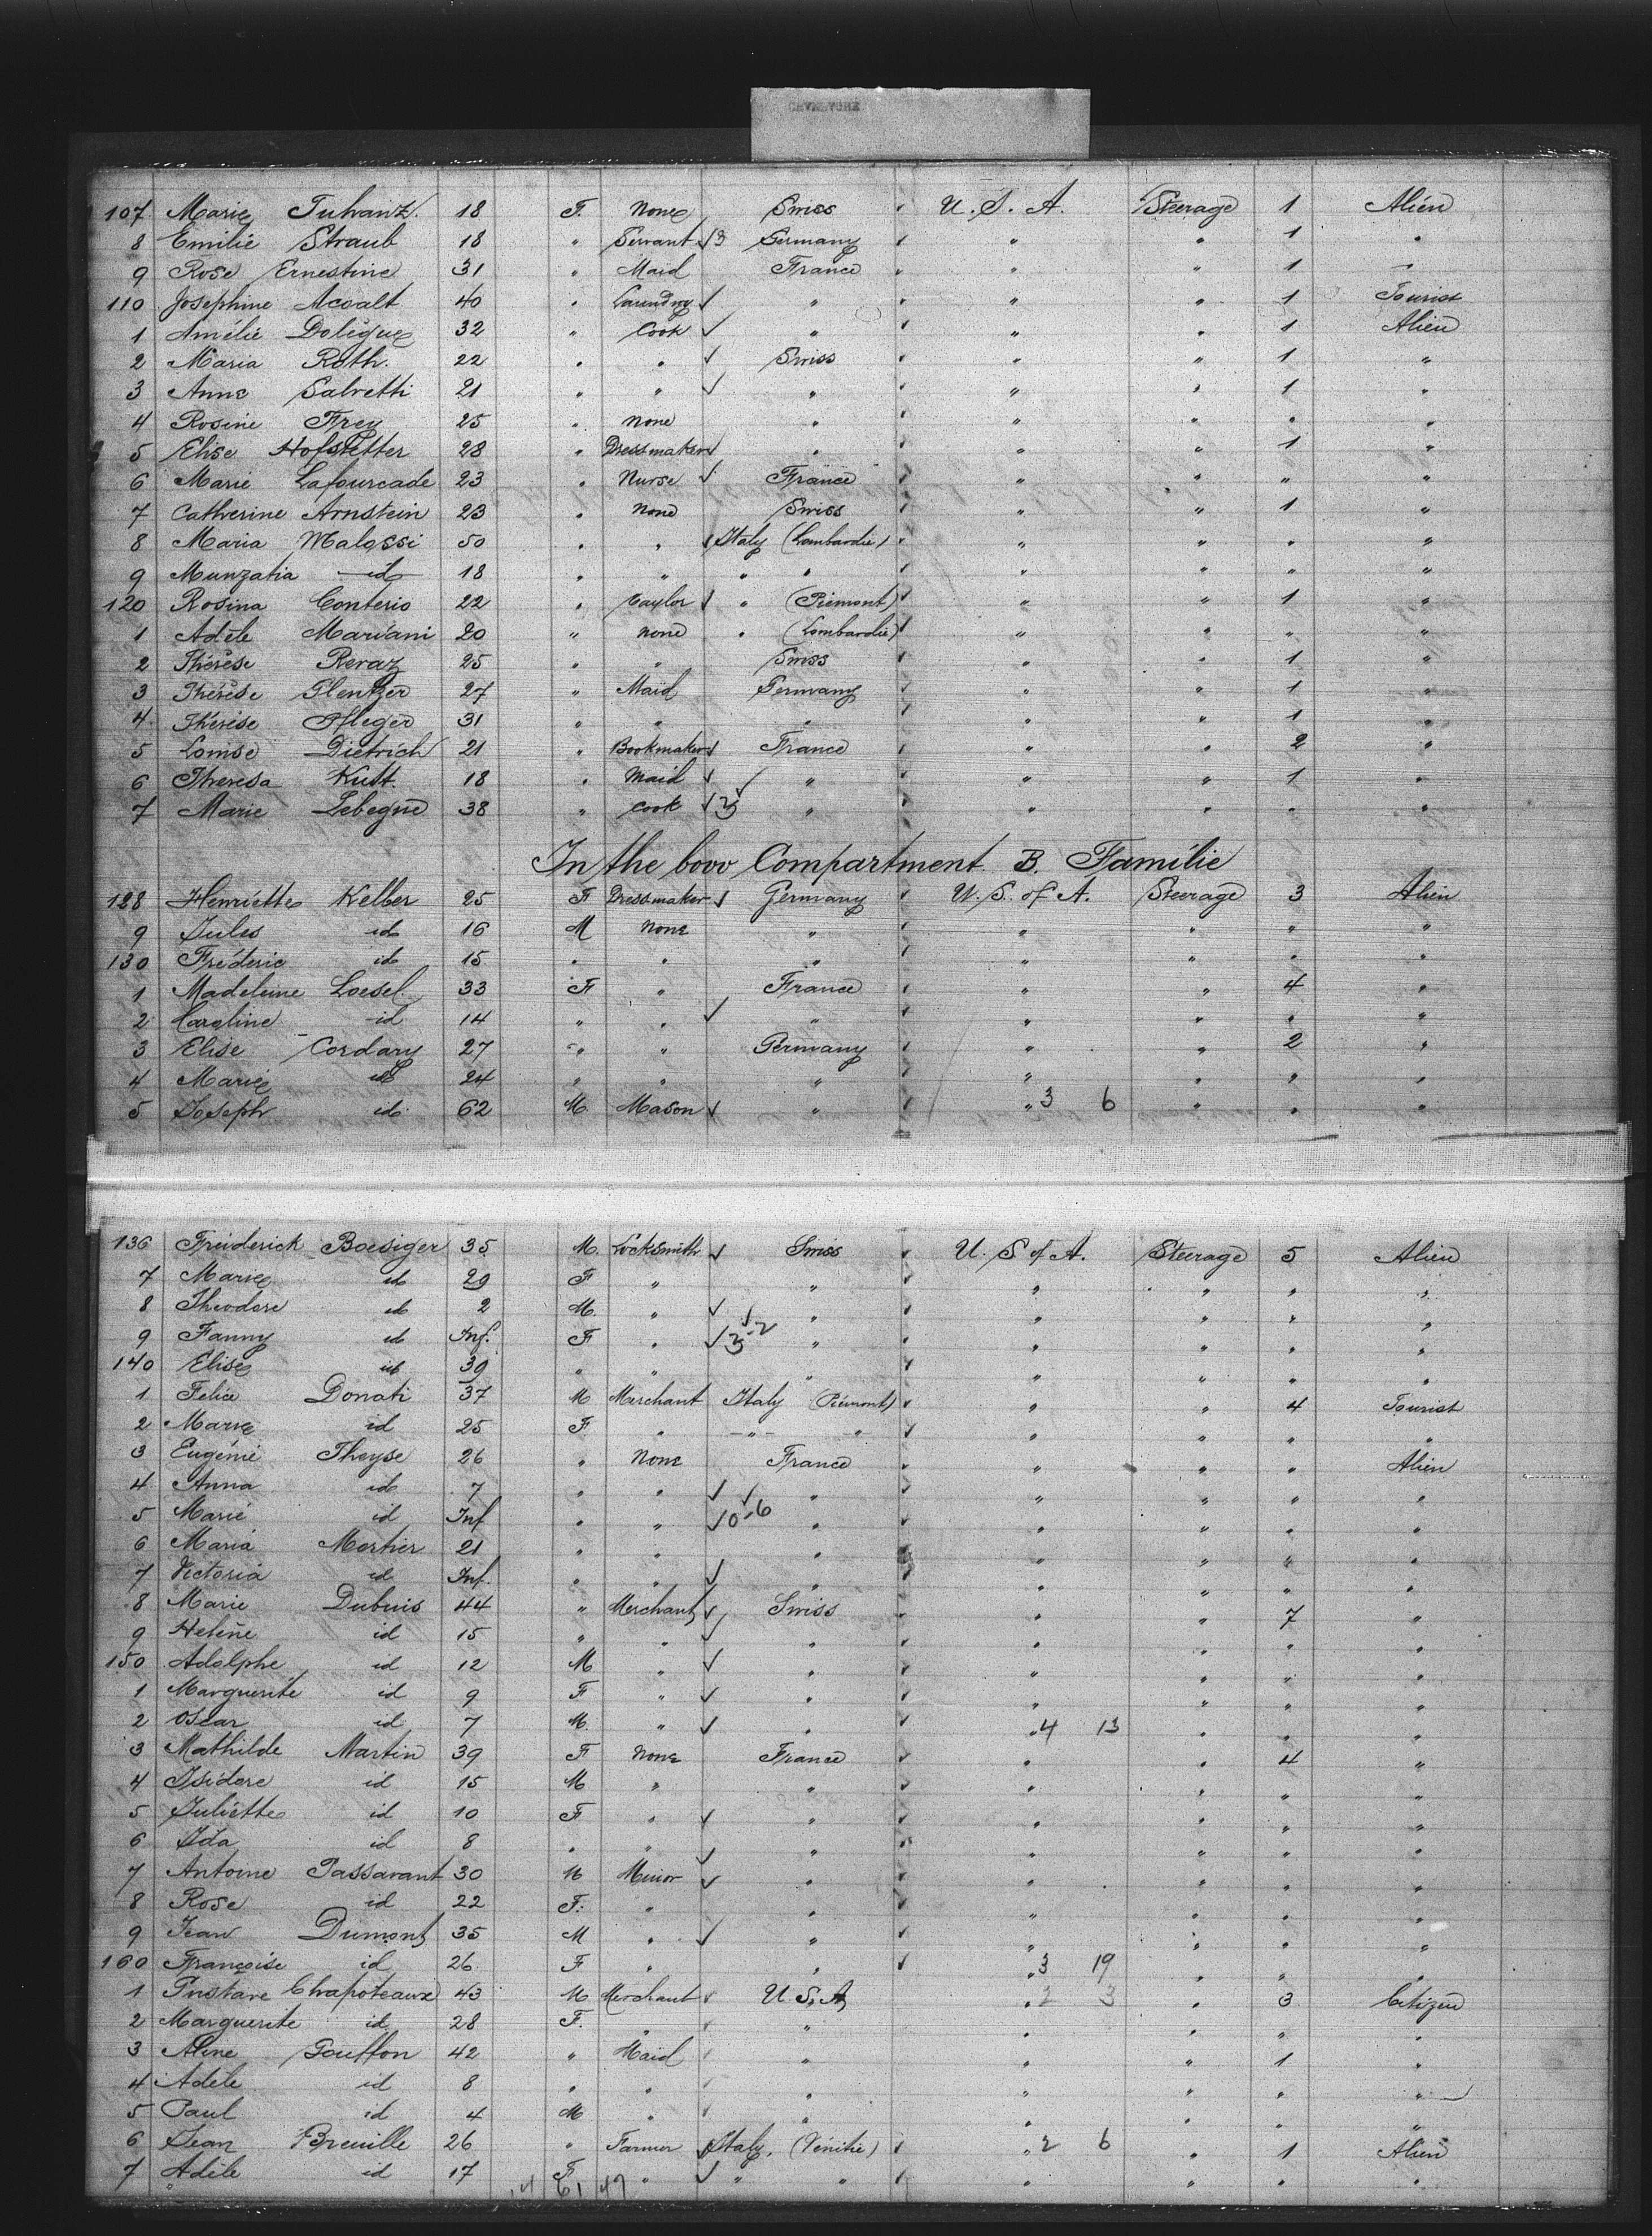 107 Marie 18 F. None Swiss U. S. A. Steerage 1 Alien
8 Emilie Straub 18 " Servant 3 Germany " " 1 "
9 Rose Ernestine 31 " Maid France " " 1 "
110 Josephine Acoalt 40 " Laundry " " " 1 Tourist
1 Amélie Dolègue 32 " Cook " " " 1 Alien
2 Maria Roth. 22 " " Swiss " " 1 "
3 Anne Salvetti 21 " " " " " 1 "
4 Rosine Frey 25 " None " " " " "
5 Elise Hofstetter 28 " Dressmaker " " " 1 "
6 Marie Lafourcade 23 " Nurse France " " " "
7 Catherine Arnstein 23 " None Swiss " " 1 "
8 Maria Malossi 50 " " Italy (Lombardie) " " " "
9 Munzatia id 18 " " " " " " " "
120 Rosina Conterio 22 " Taylor " (Piemont) " " 1 "
1 Adèle Mariani 20 " None " (Lombardie) " " " "
2 Thérèse Reraz 25 " " Swiss " " 1 "
3 Thérèse Glentzer 27 " Maid Germany " " 1 "
4 Thérèse Pfleger 31 " " " " " 1 "
5 Louise Dietrich 21 " Bookmaker France " " 2 "
6 Theresa Kutt. 18 " Maid " " " 1 "
7 Marie Lebegue 38 " Cook 3 " " " " "
In the bow Compartment B. Familie
128 Henriette Kelber 25 F Dressmaker Germany U. S. of A. Steerage 3 Alien
9 Jules id 16 M None " " " " "
130 Fréderic id 15 " " " " " " "
1 Madeleine Loesel 33 F " France " " 4 "
2 Caroline id 14 " " " " " " "
3 Elise Cordary 27 " " Germany " " 2 "
4 Marie id 24 " " " " " " "
5 Joseph id 62 M. Mason " " 3 6 " " "
136 Freiderick Boesiger 35 M. Locksmith Swiss U. S of A. Steerage 5 Alien
7 Marie id 29 F " " " " " "
8 Theodore id 2 M. " " " " " "
9 Fanny id Inf. F " 3-2 " " " " "
140 Elise id 39 " " " " " " "
1 Felice Donati 37 M Merchant Italy Piémont) " " 4 Tourist
2 Marie id 25 F. " " " " " " "
3 Eugénie Theyse 26 " None France " " " Alien
4 Anna id 7 " " " " " " "
5 Marie id Inf " " 0-6 " " " " "
6 Maria Mortier 21 " " " " " " "
7 Victoria id Inf. " " " " " " "
8 Marie Dubuis 44 " Merchant Swiss " " 7 "
9 Helène id 15 " " " " " " "
150 Adolphe id 12 M " " " " " "
1 Marguerite id 9 F " " " " " "
2 Oscar id 7 M. " " " 4 13 " " "
3 Mathilde Martin 39 F None France " " 4 "
4 Isidore id 15 M " " " " " "
5 Juliette id 10 F " " " " " "
6 Ida id 8 " " " " " " "
7 Antoine Passavant 30 M Minor " " " " "
8 Rose id 22 F. " " " " " "
9 Jean Dumont 35 M " " " " " "
160 Françoise id 26 F " " " 3 19 " " "
1 Gustave Chapoteaux 43 M. Merchant U. S. A " 2 3 " 3 Citizen
2 Marguerite id 28 F. " " " " " "
3 Aline Gouffon 42 " Maid " " " 1 "
4 Adèle id 8 " " " " " " "
5 Paul id 4 M " " " " " "
6 Jean Breuille 26 " Farmer Italy. (Vénitie) " 2 6 " 1 Alien
7 Adèle id 17 F " " " " " " "
61 47